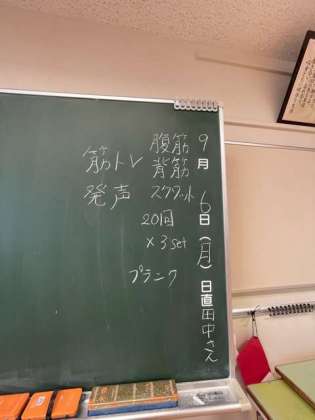 9月6日(月)日直田中さん
腹筋
筋トレ 背筋
発声 スクワット
20回
×3set
プランク